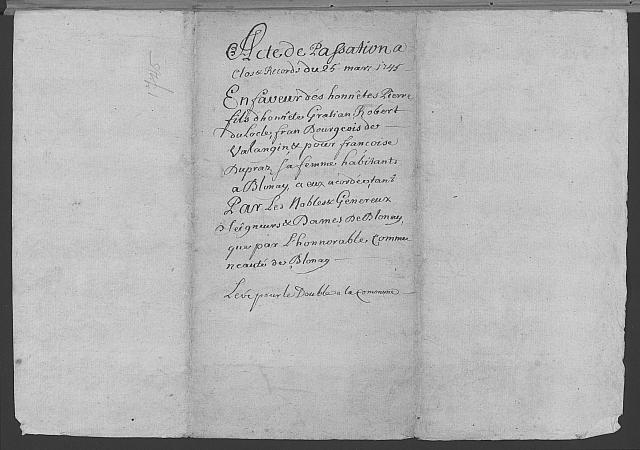 1745
Acte de Passation a
Clos & Records du 25 mars 1745
En faveur des honnêtes Pierre
fils d'honnête Gratian, Robert
du Locle, fran Bourgeois de
Valangin & pour francoise
Dupraz sa femme habitants
a Blonay, a eux acordée, tant
Par Les Nobles & Genereux
Seigneurs & Dames De Blonay,
que par L'honnorable Commu
neauté de Blonay
Levé pour le Double a la Commune